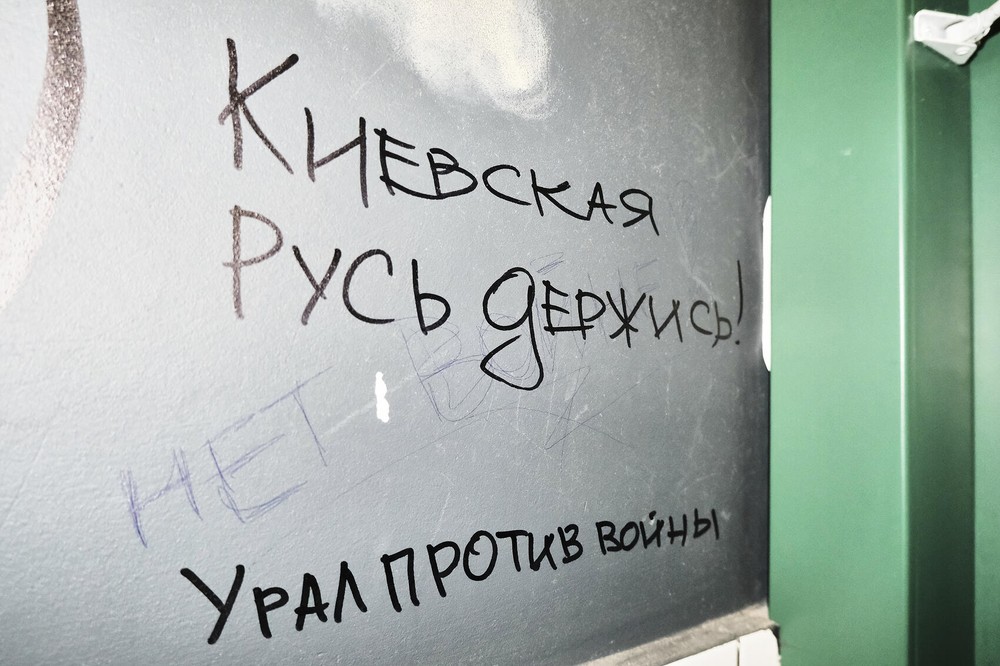 Киевская
Русь держись!
НЕТ ВОЙНЕ
Урал против войны